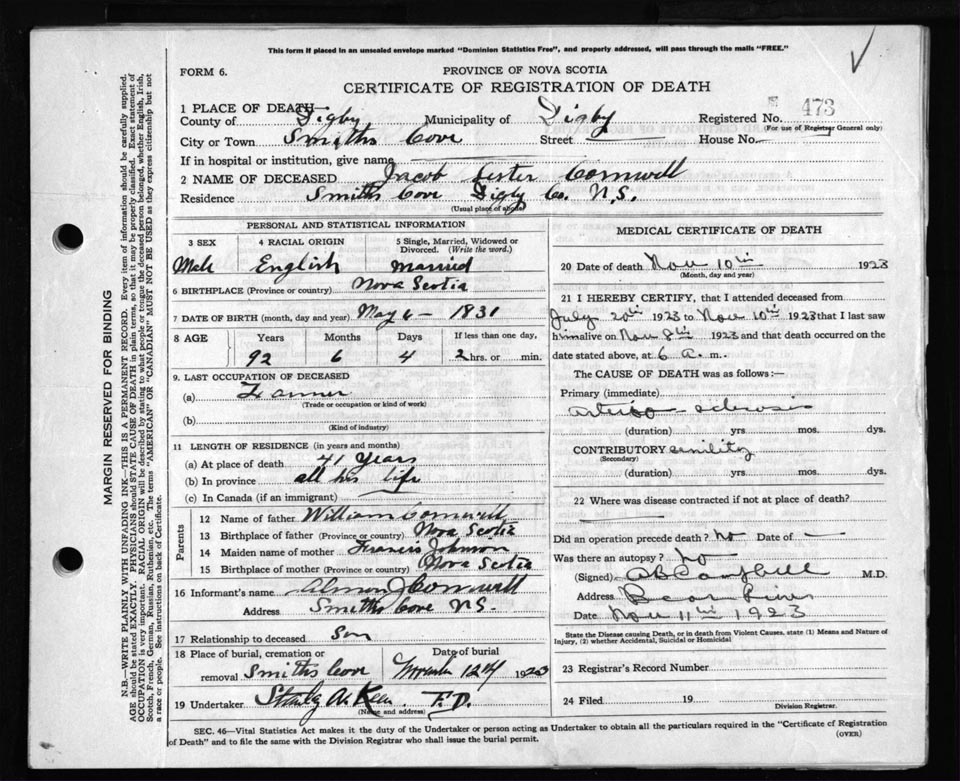 This form if placed in an unsealed envelope marked "Dominion Statistics Free", and properly addressed, will pass through the mails "FREE."
FORM 6.
PROVINCE OF NOVA SCOTIA
CERTIFICATE OF REGISTRATION OF DEATH
1 PLACE OF DEATH—
County of Digby Municipality of Digby Registered No. 473
(For use of Registrar General only)
City or Town Smiths Cove Street House No.
If in hospital or institution, give name
2 NAME OF DECEASED Jacob Lester Cornwell
Residence Smiths Cove Digby Co. N.S.
(Usual place of abode)
PERSONAL AND STATISTICAL INFORMATION
3 SEX 4 RACIAL ORIGIN 5 Single, Married, Widowed or Divorced. (Write the word.)
Male English Married
6 BIRTHPLACE (Province or country) Nova Scotia
7 DATE OF BIRTH (month, day and year) May 6 - 1831
8 AGE Years Months Days If less than one day,
92 6 4 2 hrs. or min.
9. LAST OCCUPATION OF DECEASED
(a) Farmer
(Trade or occupation or kind of work)
(b)
(Kind of industry)
11 LENGTH OF RESIDENCE (in years and months)
(a) At place of death 41 Years
(b) In province all his life
(c) In Canada (if an immigrant)
Parents
12 Name of father William Cornwell
13 Birthplace of father (Province or country) Nova Scotia
14 Maiden name of mother Francis Johnson
15 Birthplace of mother (Province or country) Nova Scotia
16 Informant's name Almon J Cornwell
Address Smiths Cove N.S.
17 Relationship to deceased Son
18 Place of burial, cremation or removal Smiths Cove Date of burial 12th 1923
19 Undertaker F.D.
(Name and address)
MEDICAL CERTIFICATE OF DEATH
20 Date of death Nov 10th 1923
(Month, day and year)
21 I HEREBY CERTIFY, that I attended deceased from
July 20th 1923 to Nov 10th 1923 that I last saw
him alive on Nov 8th 1923 and that death occurred on the
date stated above, at 6 a. m.
The CAUSE OF DEATH was as follows:—
Primary (immediate)
Arterio sclerosis
(duration) yrs mos. dys.
CONTRIBUTORY senility
(Secondary)
(duration) yrs mos. dys.
22 Where was disease contracted if not at place of death?
Did an operation precede death? No Date of —
Was there an autopsy? No
(Signed) A B Campbell M.D.
Address Bear River
Date Nov 11th 1923
State the Disease causing Death, or in death from Violent Causes, state (1) Means and Nature of
Injury, (2) whether Accidental, Suicidal or Homicidal
23 Registrar's Record Number
24 Filed 19
Division Registrar.
SEC. 46—Vital Statistics Act makes it the duty of the Undertaker or person acting as Undertaker to obtain all the particulars required in the "Certificate of Registration
of Death" and to file the same with the Division Registrar who shall issue the burial permit.
(OVER)
MARGIN RESERVED FOR BINDING
N.B.—WRITE PLAINLY WITH UNFADING INK—THIS IS A PERMANENT RECORD. Every item of information should be carefully supplied.
AGE should be stated EXACTLY. PHYSICIANS should STATE CAUSE OF DEATH in plain terms, so that it may be properly classified. Exact statement of
OCCUPATION is very important. RACIAL ORIGIN will be described by stating to what people or tongue the deceased person belonged, whether English, Irish,
Scotch, French, German, Russian, Ruthenian, etc. The terms "AMERICAN" OR "CANADIAN" MUST NOT BE USED as they express citizenship but not
a race or people. See instructions on back of Certificate.